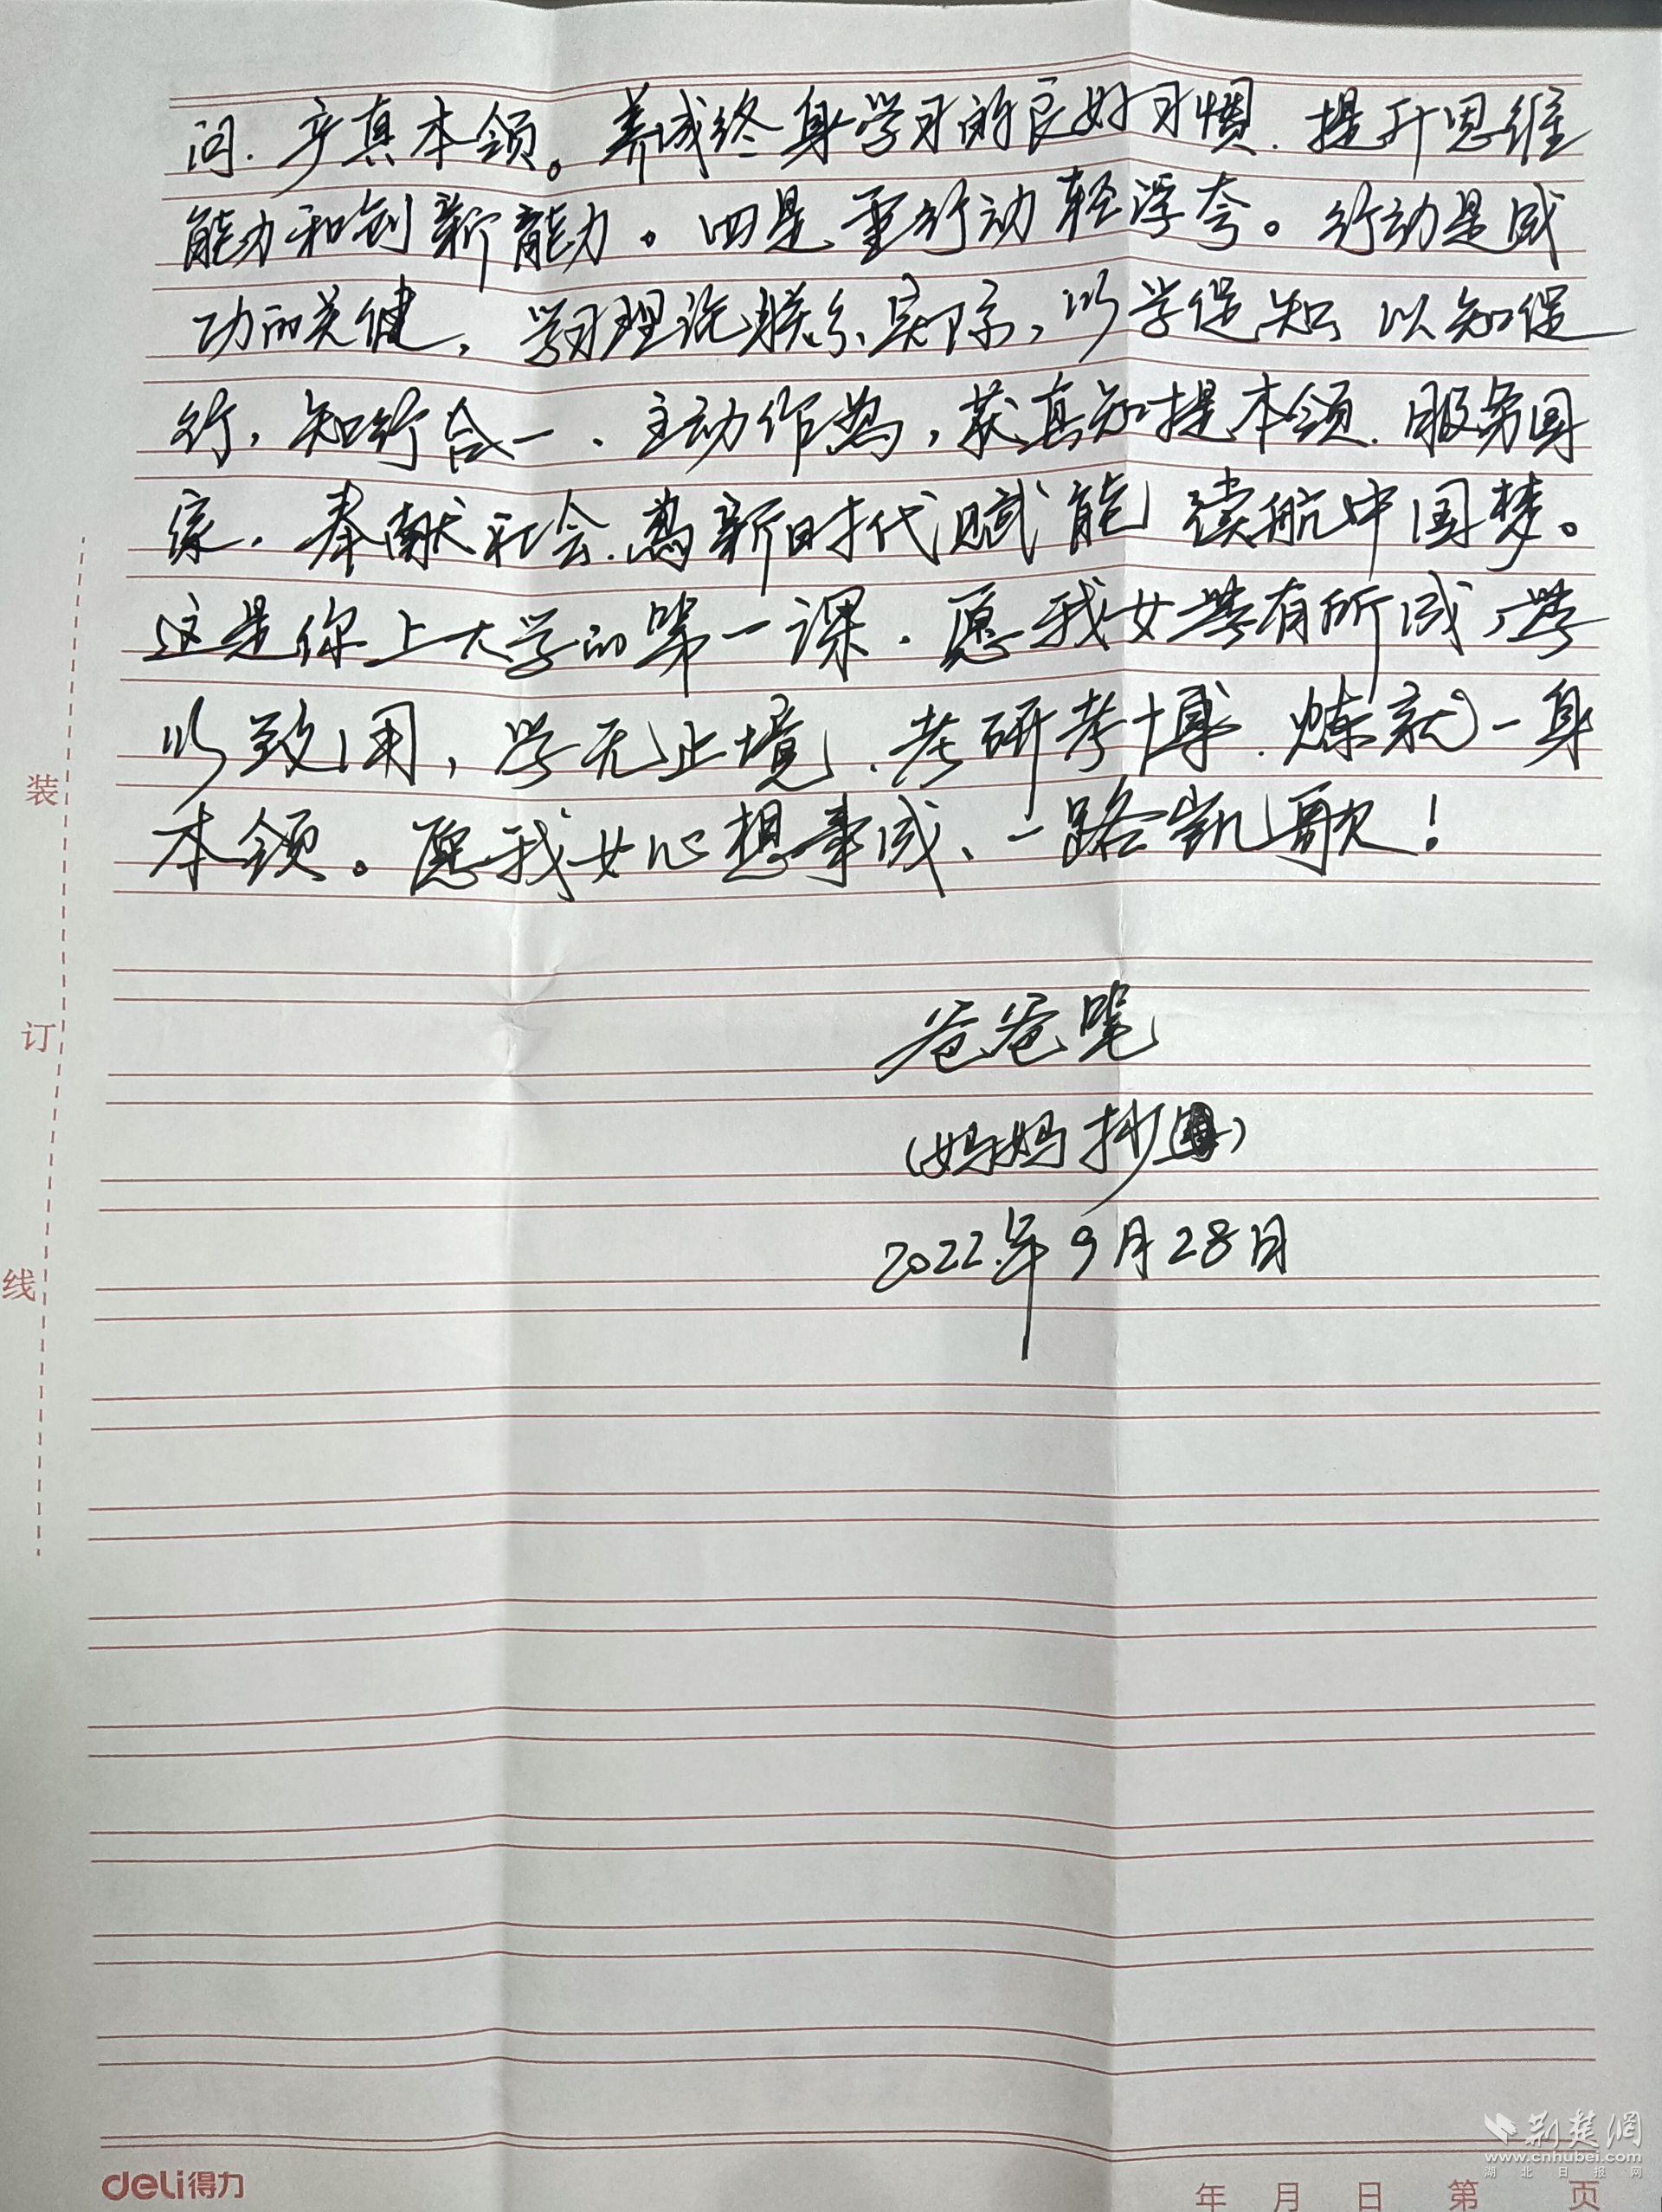 问.学真本领。养成终身学习的良好习惯.提升思维
能力和创新能力。四是重行动轻浮夸。行动是成
功的关健,学习理论联系实际,以学促知 以知促
行,知行合一、主动作为,获真知提本领.服务国
家.奉献社会.为新时代赋能 续航中国梦。
这是你上大学的第一课.愿我女学有所成,学
以致用,学无止境.考研考博.炼就一身
本领。愿我女心想事成、一路凯歌!
爸爸笔
(妈妈抄)
2022.年9月28日
装
订
线
deli得力
年 月 日 第 页
荆楚网
www.cnhubei.com
湖北日报网